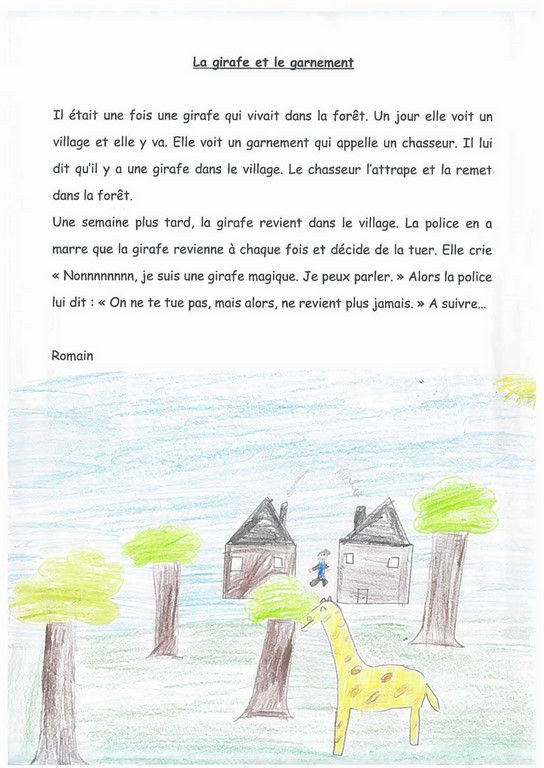 La girafe et le garnement
Il était une fois une girafe qui vivait dans la forêt. Un jour elle voit un
village et elle y va. Elle voit un garnement qui appelle un chasseur. Il lui
dit qu'il y a une girafe dans le village. Le chasseur l'attrape et la remet
dans la forêt.
Une semaine plus tard, la girafe revient dans le village. La police en a
marre que la girafe revienne à chaque fois et décide de la tuer. Elle crie
« Nonnnnnnnn, je suis une girafe magique. Je peux parler. » Alors la police
lui dit : « On ne te tue pas, mais alors, ne revient plus jamais. » A suivre…
Romain